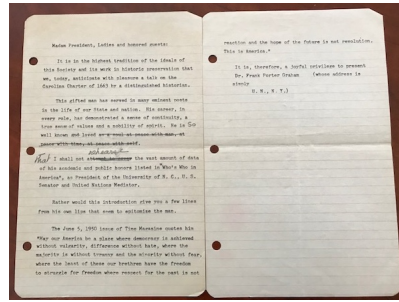 Madam President, Ladies and honored guests:
It is in the highest tradition of the ideals of
this Society and its work in historic preservation that
we, today, anticipate with pleasure a talk on the
Caroline Charter of 1663 by a distinguished historian.
This gifted man has served in many eminent posts
in the life of our State and nation. His career, in
every role, has demonstrated a sense of continuity, a
true sense of values and a nobility of spirit. He is so
well known and loved as a soul at peace with man, at
peace with time, at peace with self.
that I shall not attempt to rehearse the vast amount of data
of his academic and public honors listed in "Who's Who in
America", as President of the University of N. C., U. S.
Senator and United Nations Mediator.
Rather would this introduction give you a few lines
from his own line that seem to epitomize the man.
The June 5, 1950 issue of Time Magazine quotes him
"May our America be a place where democracy is achieved
without vulgarity, difference without hate, where the
majority is without tyranny and the minority without fear,
where the least of these our brethren have the freedom
to struggle for freedom where respect for the past is not
reaction and the hope of the future is not revolution.
This is America."
It is, therefore, a joyful privilege to present
Dr. Frank Porter Graham (whose address is
simply
U. N., N. Y.)